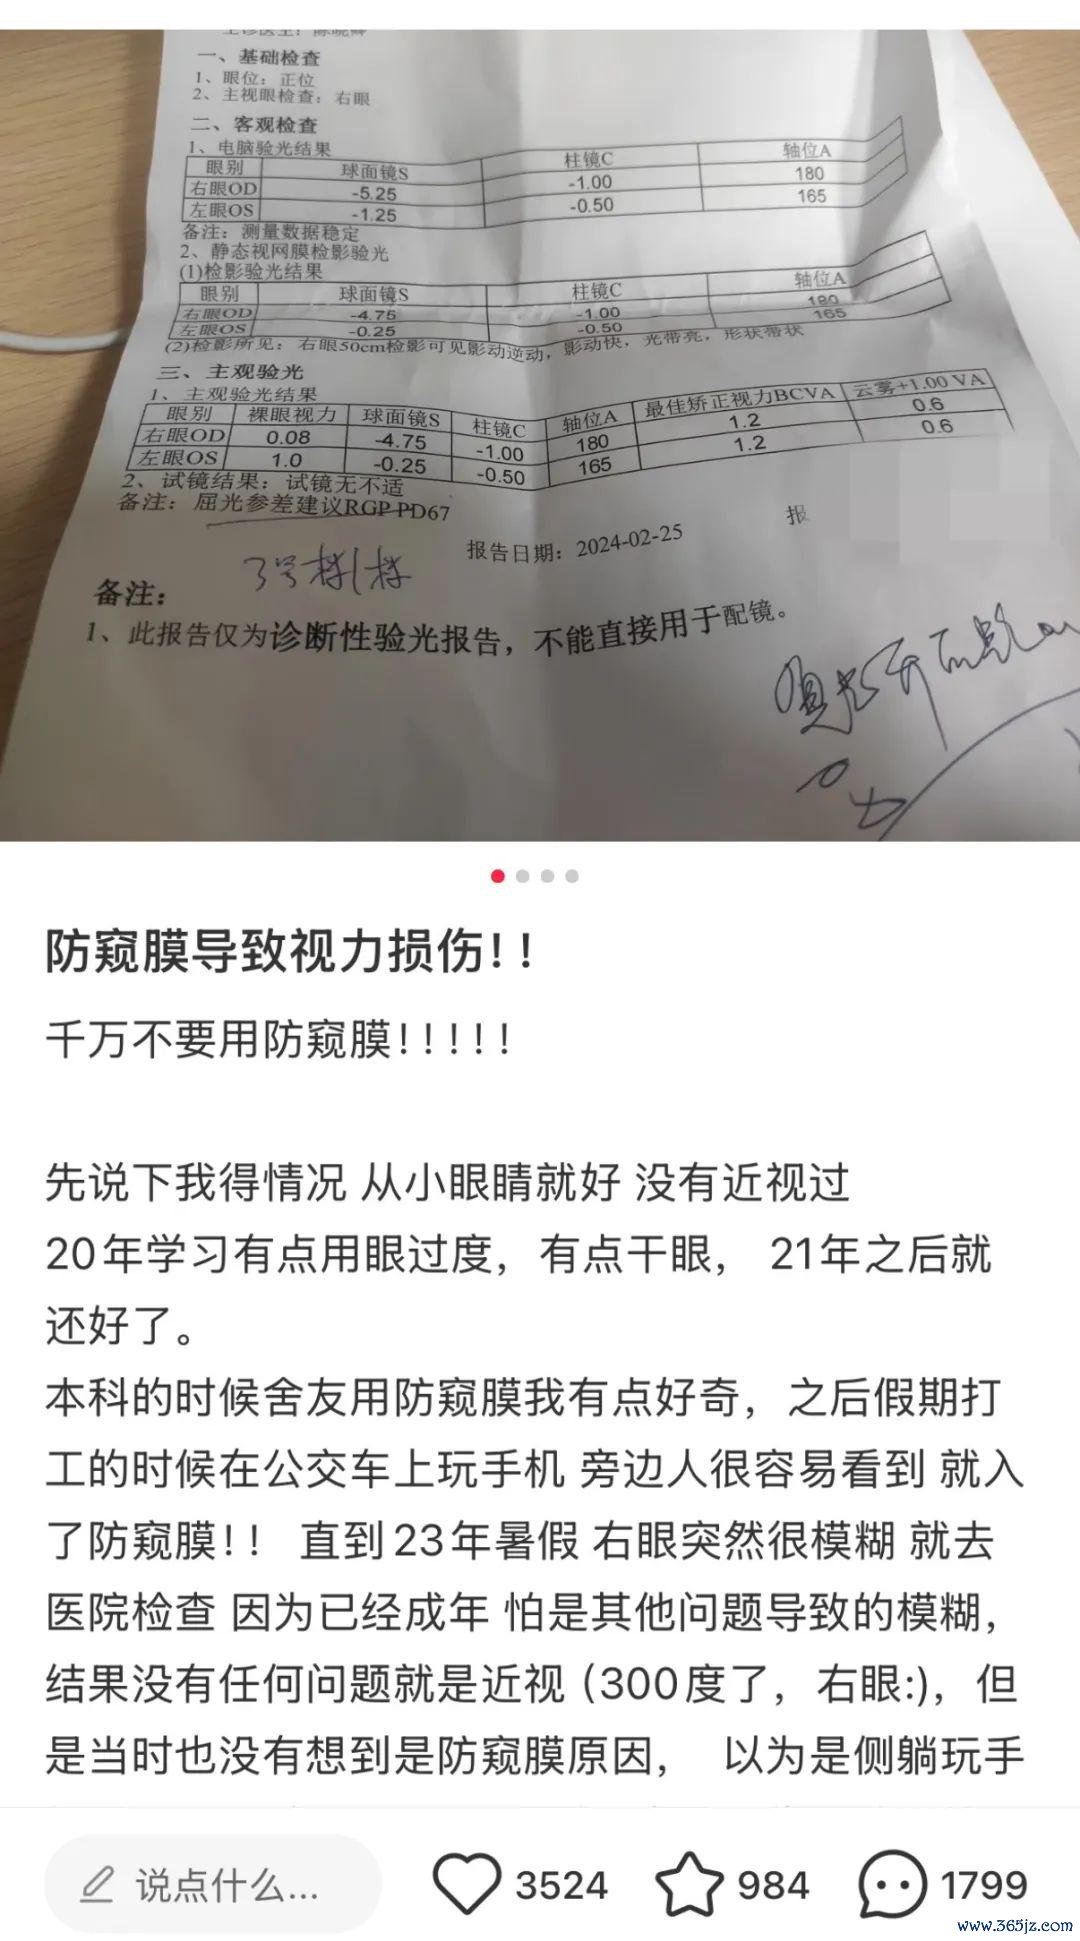 一、基础检查
1、眼位：正位
2、主视眼检查：右眼
二、客观检查
1、电脑验光结果
眼别 球面镜S 柱镜C 轴位A
右眼OD -5.25 -1.00 180
左眼OS -1.25 -0.50 165
备注：测量数据稳定
2、静态视网膜检影验光
(1)检影验光结果
眼别 球面镜S 柱镜C 轴位A
右眼OD -4.75 -1.00 180
左眼OS -0.25 -0.50 165
(2)检影所见：右眼50cm检影可见影动逆动，影动快，光带亮，形状带状
三、主观验光
1、主观验光结果
眼别 裸眼视力 球面镜S 柱镜C 轴位A 最佳矫正视力BCVA 云雾+1.00 VA
右眼OD 0.08 -4.75 -1.00 180 1.2 0.6
左眼OS 1.0 -0.25 -0.50 165 1.2 0.6
2、试镜结果：试镜无不适
备注：屈光参差建议RGP PD67
报
报告日期：2024-02-25
备注：
1、此报告仅为诊断性验光报告，不能直接用于配镜。
防窥膜导致视力损伤！！
千万不要用防窥膜！！！！！
先说下我得情况 从小眼睛就好 没有近视过
20年学习有点用眼过度，有点干眼， 21年之后就
还好了。
本科的时候舍友用防窥膜我有点好奇，之后假期打
工的时候在公交车上玩手机 旁边人很容易看到 就入
了防窥膜！！ 直到23年暑假 右眼突然很模糊 就去
医院检查 因为已经成年 怕是其他问题导致的模糊，
结果没有任何问题就是近视（300度了，右眼:)，但
是当时也没有想到是防窥膜原因， 以为是侧躺玩手
说点什么... 3524 984 1799
www.365jz.com